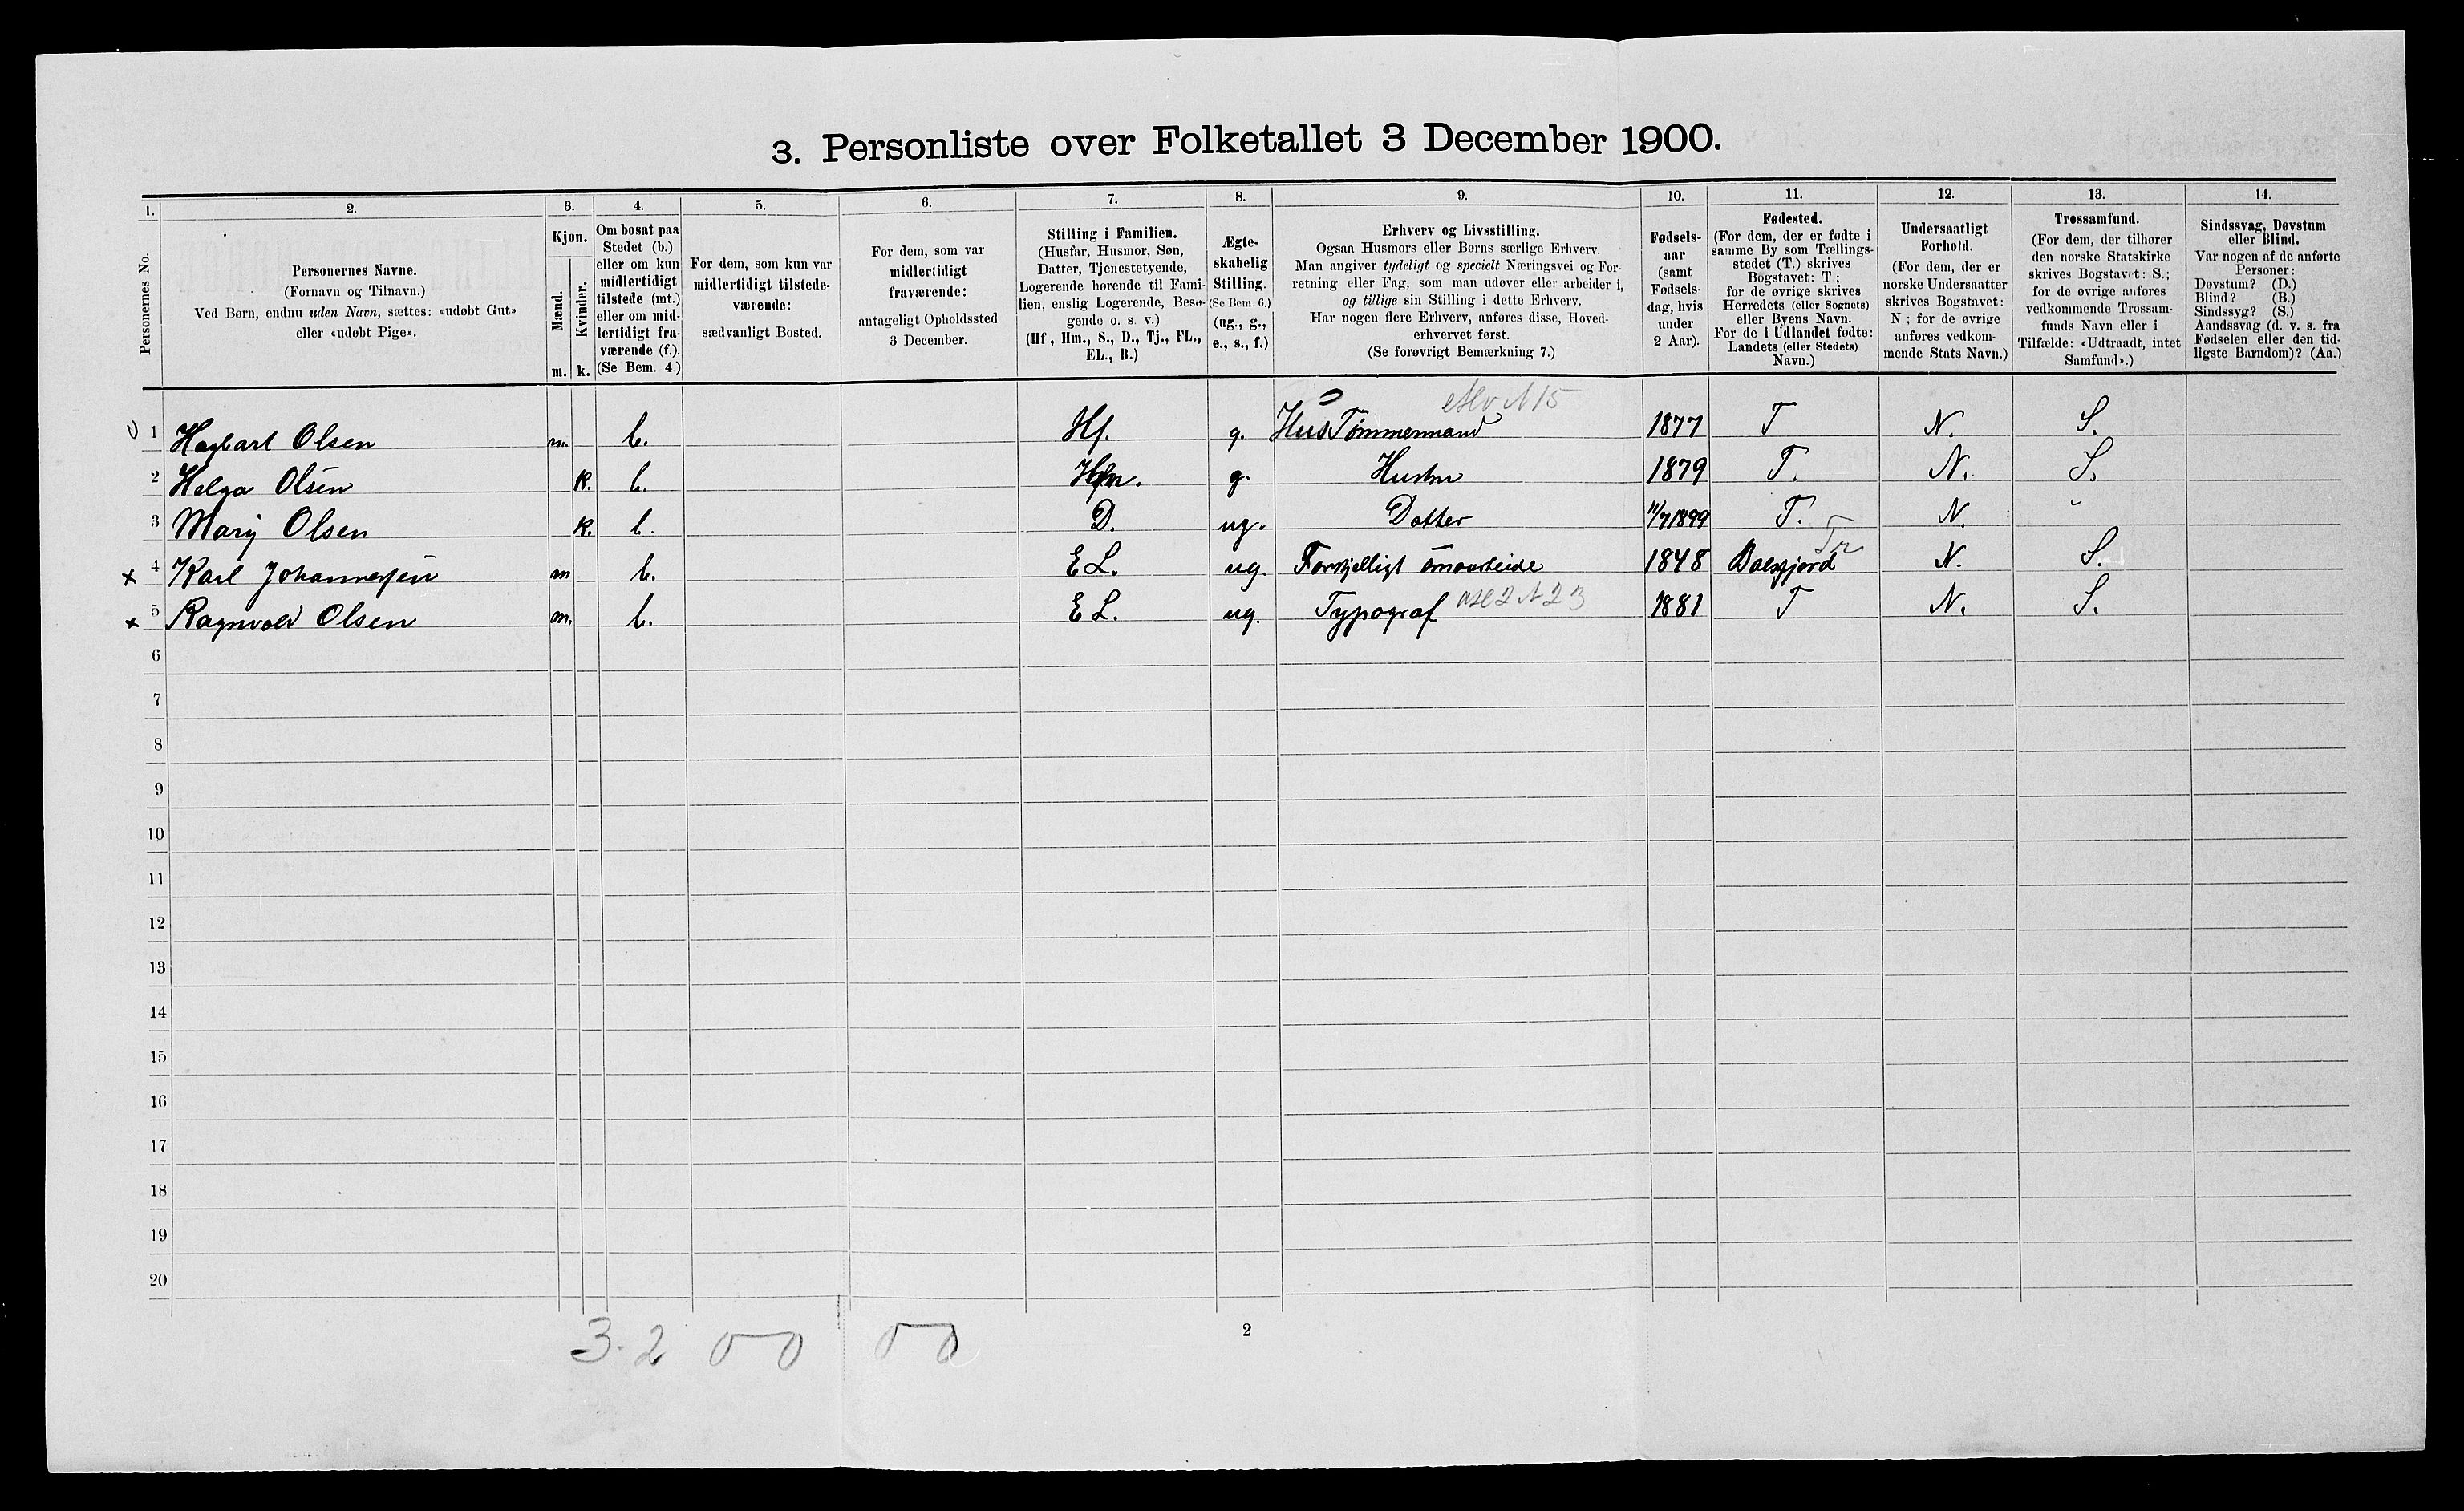 3. Personliste over Folketallet 3 December 1900.
1. 2. 3. 4. 5. 6. 7. 8. 9. 10. 11. 12. 13. 14.
Personernes No.
Personernes Navne.
(Fornavn og Tilnavn.)
Ved Børn, endnu uden Navn, sættes: «udøbt Gut»
eller «udøbt Pige».
Kjøn.
Mænd.
Kvinder.
m. k.
Om bosat paa
Stedet (b.)
eller om kun
midlertidigt
tilstede (mt.)
eller om mid-
lertidigt fra-
værende (f.).
(Se Bem. 4.)
For dem, som kun var
midlertidigt tilstede-
værende:
sædvanligt Bosted.
For dem, som var
midlertidigt
fraværende:
antageligt Opholdssted
3 December.
Stilling i Familien.
(Husfar, Husmor, Søn,
Datter, Tjenestetyende,
Logerende hørende til Fami-
lien, enslig Logerende, Besø-
gende o. s. v.)
(Hf., Hm., S., D., Tj., FL.,
EL., B.)
Ægte-
skabelig
Stilling.
(Se Bem. 6.)
(ug., g.,
e., s., f.)
Erhverv og Livsstilling.
Ogsaa Husmors eller Børns særlige Erhverv.
Man angiver tydeligt og specielt Næringsvei og For-
retning eller Fag, som man udøver eller arbeider i,
og tillige sin Stilling i dette Erhverv.
Har nogen flere Erhverv, anføres disse, Hoved-
erhvervet først.
(Se forøvrigt Bemærkning 7.)
Fødsels-
aar
(samt
Fødsels-
dag, hvis
under
2 Aar).
Fødested.
(For dem, der er fødte i
samme By som Tællings-
stedet (T.) skrives
Bogstavet: T;
for de øvrige skrives
Herredets (eller Sognets)
eller Byens Navn.
For de i Udlandet fødte:
Landets (eller Stedets)
Navn.)
Undersaatligt
Forhold.
(For dem, der er
norske Undersaatter
skrives Bogstavet:
N.; for de øvrige
anføres vedkom-
mende Stats Navn.)
Trossamfund.
(For dem, der tilhører
den norske Statskirke
skrives Bogstavet: S.;
for de øvrige anføres
vedkommende Trossam-
funds Navn eller i
Tilfælde: «Udtraadt, intet
Samfund».)
Sindssvag, Døvstum
eller Blind.
Var nogen af de anførte
Personer:
Døvstum? (D.)
Blind? (B.)
Sindssyg? (S.)
Aandssvag (d. v. s. fra
Fødselen eller den tid-
ligste Barndom)? (Aa.)
1 Hagbart Olsen m. b. Hf. g. Hus Tømmermand 1877 T N. S.
2 Helga Olsen k. b. Hm. g. Hustru 1879 T. N. S.
3 Mary Olsen k. b. D. ug. Datter 11/7 1899 T. N. "
Tr
x 4 Karl Johannesen m b. E L. ug. Forskjelligt 1848 Balsfjord N. S.
x 5 Ragnvald Olsen m. b. E L. ug. Typograf 1881 T N. S.
6
7
8
9
10
11
12
13
14
15
16
17
18
19
20
3. 2 0 0 0 0
2